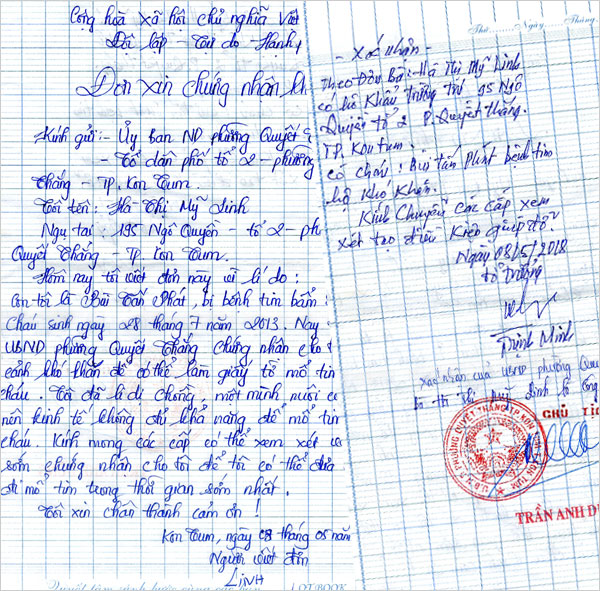 Cộng hoà xã hội chủ nghĩa Việt
Độc lập - Tự do - Hạnh
Đơn xin chứng nhận kh
Kính gửi: - Ủy Ban ND phường Quyết
- Tổ dân phố tổ 2 - phường
Thắng - TP. Kon Tum.
Tôi tên: Hà Thị Mỹ Linh
Ngụ tại 195 Ngô Quyền - tổ 2 - ph
Quyết Thắng - TP. Kon Tum.
Hôm nay tôi viết đơn này vì lí do:
Con tôi là Bùi Tấn Phát, bị bệnh tim bẩm
Cháu sinh ngày 28 tháng 7 năm 2013. Nay
UBND phường Quyết Thắng chứng nhận cho t
cảnh khó khăn để có thể làm giấy tờ mổ tim
cháu. Tôi đã li dị chồng, một mình nuôi co
nên kinh tế không đủ khả năng để mổ tim
cháu. Kính mong các cấp có thể xem xét và
sớm chứng nhận cho tôi để tôi có thể đưa
đi mổ tim trong thời gian sớm nhất.
Tôi xin chân thành cảm ơn!
Kon Tum, ngày 08 tháng 05 năm
Người viết đơn
LINH
Thứ Ngày Tháng
- Xác nhận -
Theo Đơn Bà: Hà Thị Mỹ Linh
có hộ khẩu thường trú 195 Ngô
Quyền tổ 2 P. Quyết Thắng.
TP. Kon tum.
có cháu: Bùi tấn Phát bệnh tim
hộ khó khăn.
Kính chuyển các cấp xem
xét tạo điều kiện giúp đỡ.
Ngày 08/5/2018
tổ trưởng
Trịnh Minh
Xác nhận của UBND phường Quy
Bà Hà Thị Mỹ Linh
CHỦ TỊC
PHƯỜNG QUYẾT THẮNG TP KON TUM
TRẦN ANH D